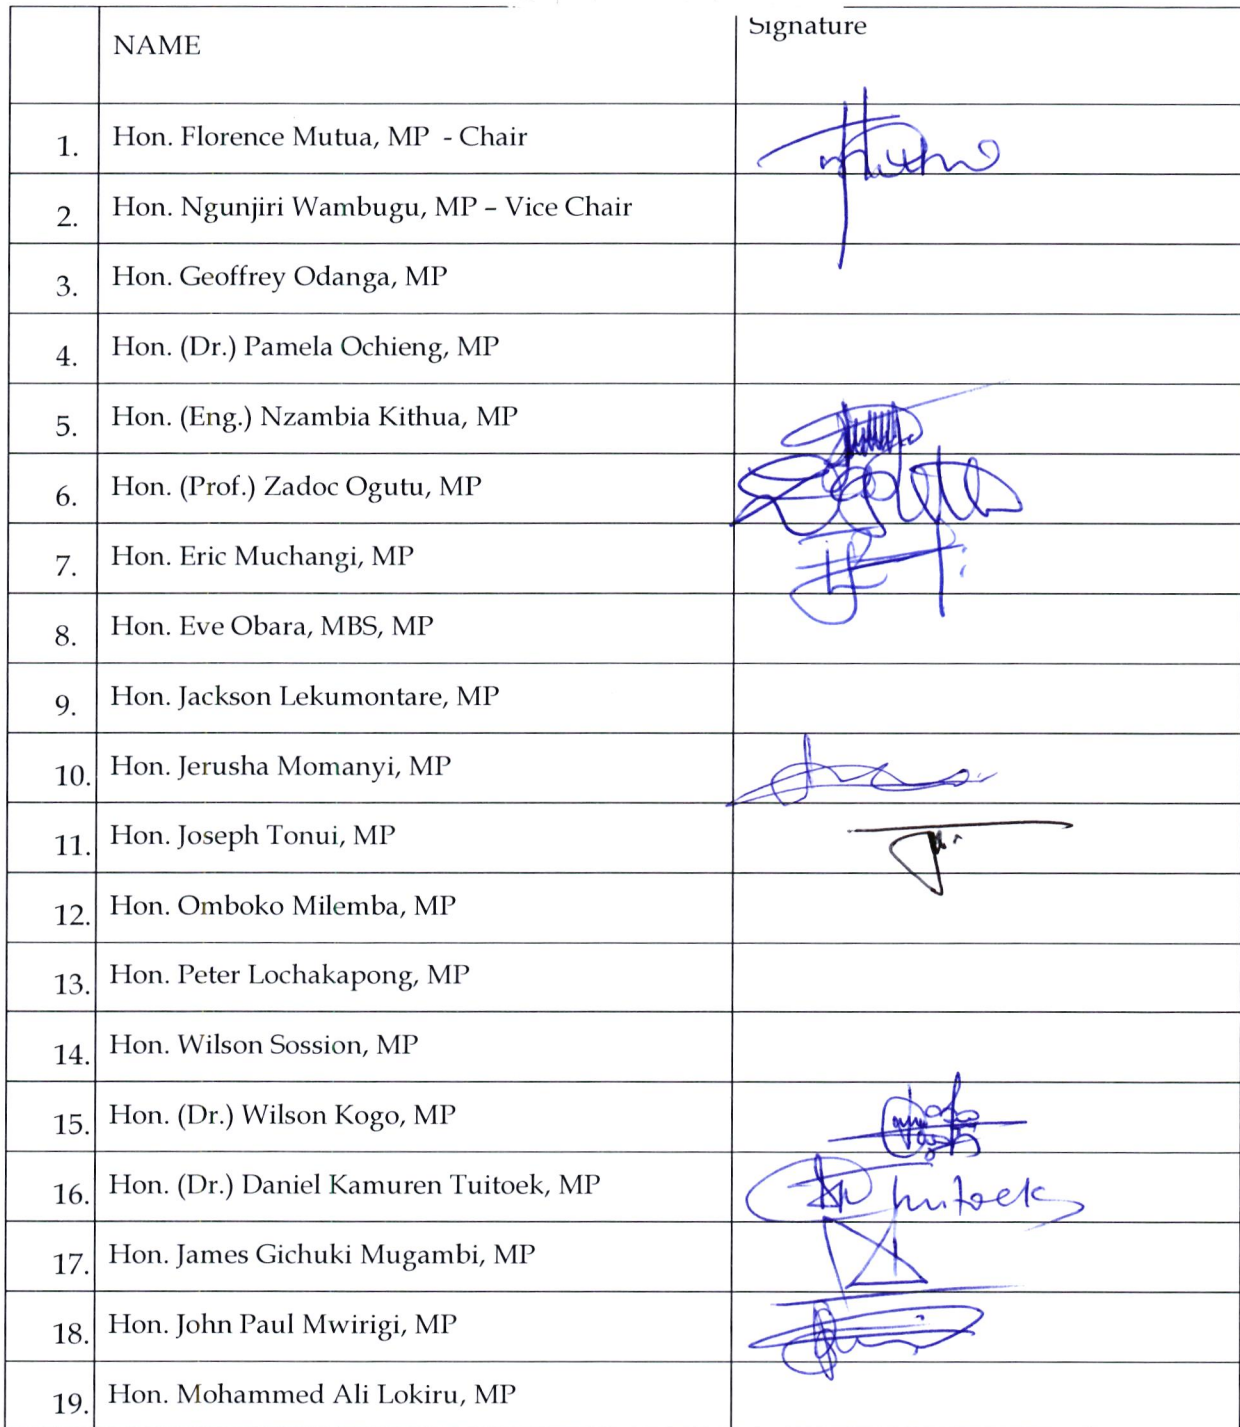 NAME Signature
1. Hon. Florence Mutua, MP - Chair
2. Hon. Ngunjiri Wambugu, MP – Vice Chair
3. Hon. Geoffrey Odanga, MP
4. Hon. (Dr.) Pamela Ochieng, MP
5. Hon. (Eng.) Nzambia Kithua, MP
6. Hon. (Prof.) Zadoc Ogutu, MP
7. Hon. Eric Muchangi, MP
8. Hon. Eve Obara, MBS, MP
9. Hon. Jackson Lekumontare, MP
10. Hon. Jerusha Momanyi, MP
11. Hon. Joseph Tonui, MP
12. Hon. Omboko Milemba, MP
13. Hon. Peter Lochakapong, MP
14. Hon. Wilson Sossion, MP
15. Hon. (Dr.) Wilson Kogo, MP
16. Hon. (Dr.) Daniel Kamuren Tuitoek, MP Tuitoek
17. Hon. James Gichuki Mugambi, MP
18. Hon. John Paul Mwirigi, MP
19. Hon. Mohammed Ali Lokiru, MP